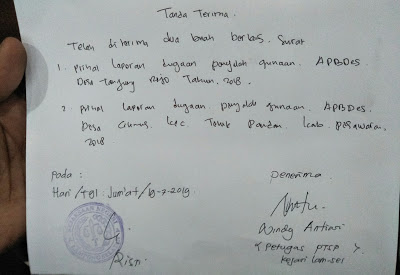 Tanda Terima.
Telah diterima dua buah berkas. Surat
1. Prihal laporan dugaan penyalah gunaan. APBDes.
Desa Tanjung Rejo Tahun. 2018.
2. Prihal laporan dugaan. penyalah gunaan. APBDes.
Desa kec. Pandan. kab. pesawaran.
2018
Pada :
Hari/tgl : Jum'at/19-7-2019.
penerima
Windy
( Petugas PTSP )
kejari Lam-sel